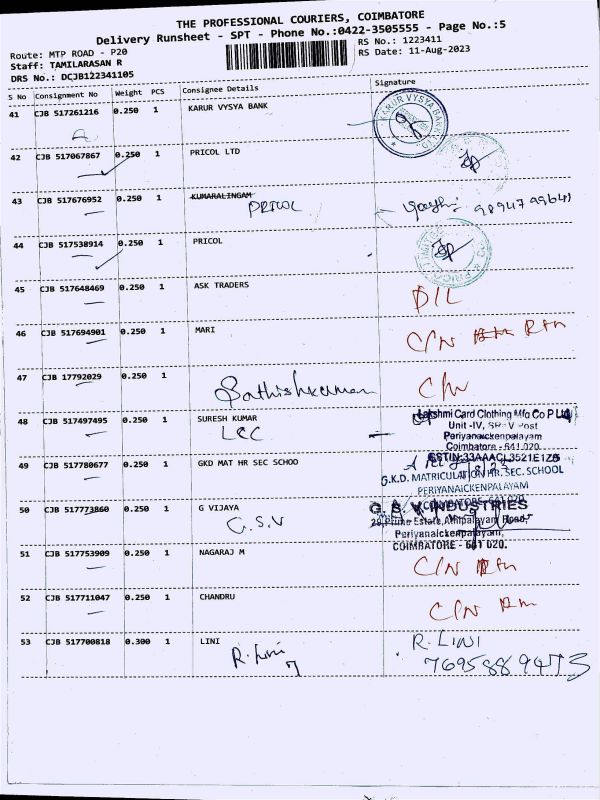 THE PROFESSIONAL COURIERS, COIMBATORE
Delivery Runsheet - SPT - Phone No.:0422-3505555 - Page No.:5
Route: MTP ROAD - P20
RS No.: 1223411
Staff: TAMILARASAN R
RS Date: 11-Aug-2023
DRS No.: DCJB122341105
S No Consignment No Weight PCS Consignee Details Signature
41 CJB 517261216 0.250 1 KARUR VYSYA BANK
KARUR VYSYA BANK
42 CJB 517067867 0.250 1 PRICOL LTD
43 CJB 517676952 0.250 1 KUMARALINGAM
PRICOL 9894799641
44 CJB 517538914 0.250 1 PRICOL
45 CJB 517648469 0.250 1 ASK TRADERS
D/L
46 CJB 517694901 0.250 1 MARI
C/N Rtn
47 CJB 17792029 0.250 1
Sathishkumar C/N
48 CJB 517497495 0.250 1 SURESH KUMAR
LCC
Lakshmi Card Clothing Mfg Co P Ltd
Unit -IV, SRKV Post
Periyanaickenpalayam
Coimbatore - 641 020.
GSTIN:33AAACL3521E1Z6
49 CJB 517780677 0.250 1 GKD MAT HR SEC SCHOO
G.K.D. MATRICULATION HR. SEC. SCHOOL
PERIYANAICKENPALAYAM
COIMBATORE-641 020
50 CJB 517773860 0.250 1 G VIJAYA
G.S.V
G. S. V. INDUSTRIES
Periyanaickenpalayam,
COIMBATORE - 641 020.
51 CJB 517753909 0.250 1 NAGARAJ M
C/N Rtn
52 CJB 517711047 0.250 1 CHANDRU
C/N
53 CJB 517700818 0.300 1 LINI
R. Lini
R. LINI
7695889473